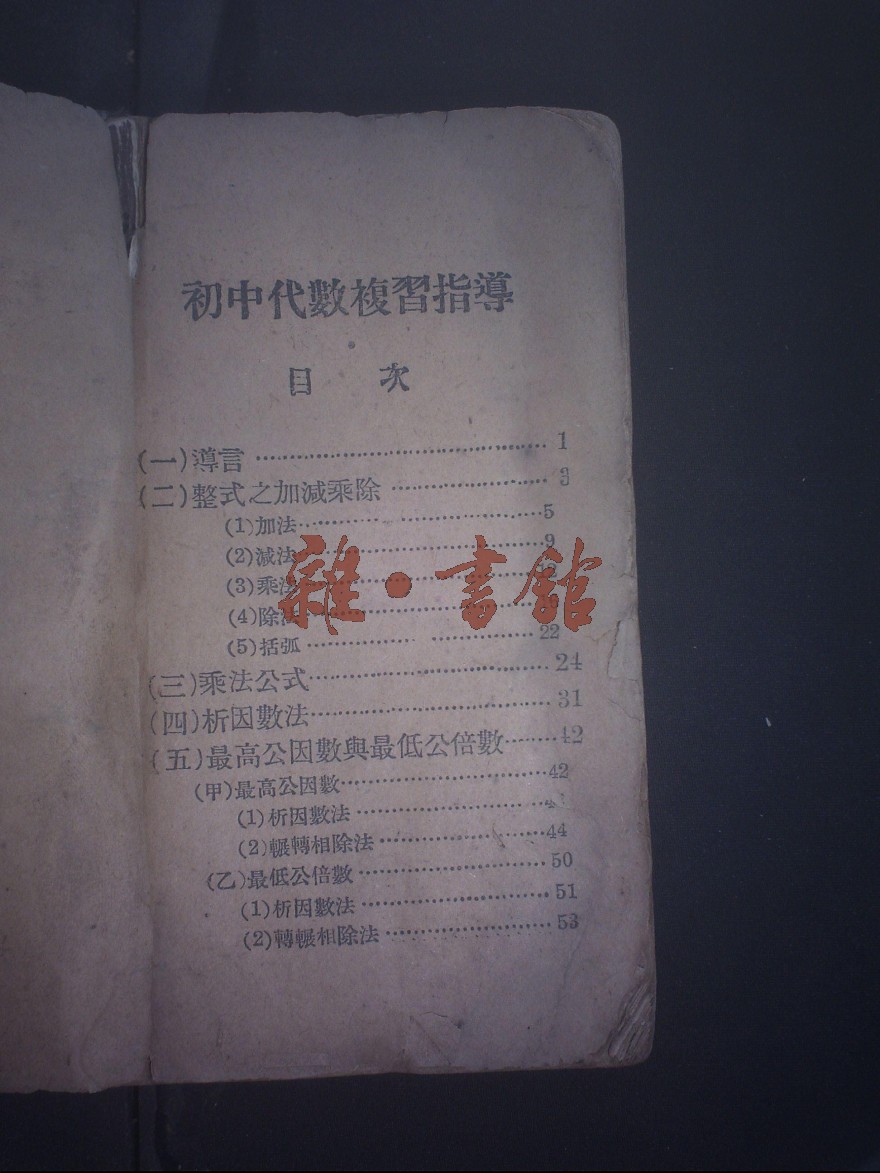 初中代數複習指導
目 次
(一)導言 1
(二)整式之加減乘除 3
(1)加法 5
(2)減法 9
(3)乘法
(4)除法
(5)括弧 22
雜·書館
(三)乘法公式 24
(四)析因數法 31
(五)最高公因數與最低公倍數 42
(甲)最高公因數 42
(1)析因數法
(2)輾轉相除法 44
(乙)最低公倍數 50
(1)析因數法 51
(2)轉輾相除法 53